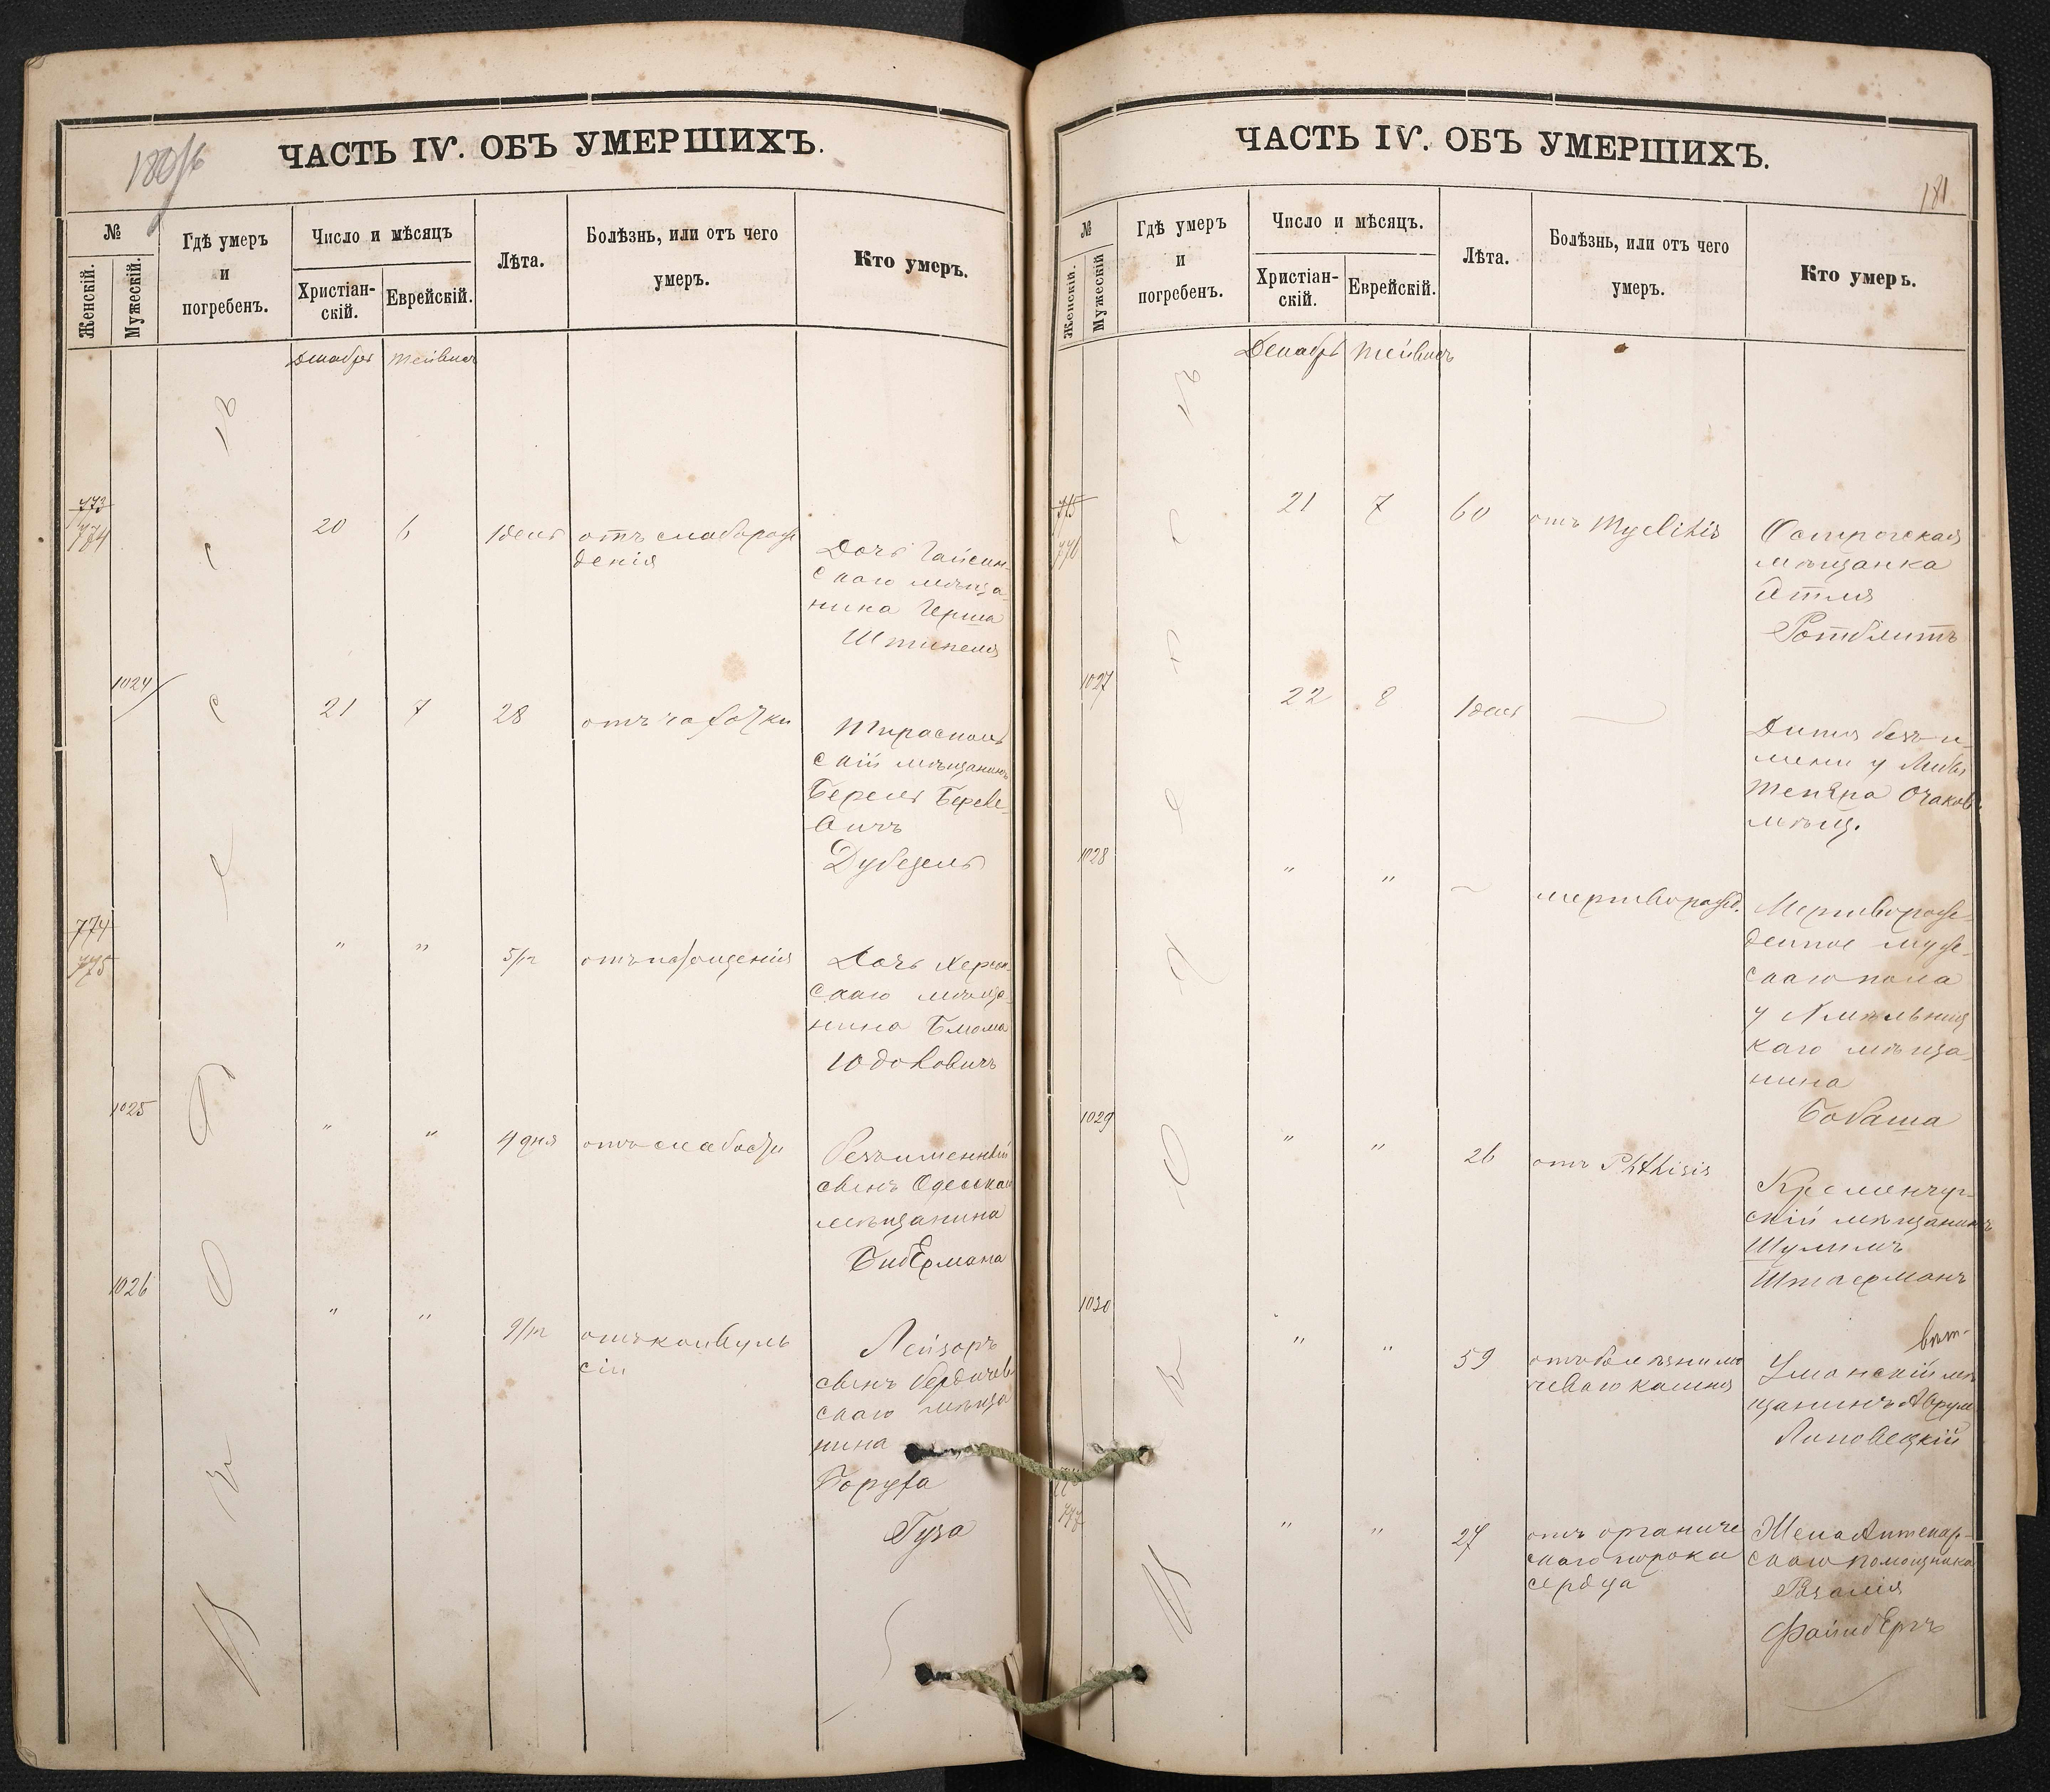 180/б
ЧАСТЬ IV. ОБЪ УМЕРШИХЪ.
№
Женскій.
Мужескій.
Гдѣ умеръ
и
погребенъ.
Число и мѣсяцъ
Христіан-
скій.
Еврейскій.
Лѣта.
Болѣзнь, или отъ чего
умеръ.
Кто умеръ.
Декабрь Тейвисъ
773
774
20 6 1 день отъ слаборож
денія
Дочь Гайсин-
скаго мѣща-
нина Герша
1024
21 7 28 отъ чахотки
Тирасполь
скій мѣщанинъ
Берель Берко-
вичъ
774
775
" " 5/м отъ истощенія
Дочь Херсон-
скаго мѣща-
нина
1025
" " 4 дня отъ слабости
Безъименный
сынъ Одесскаго
мѣщанина
Бибермана
1026
" " 9/м отъ конвуль
сіи
Лейзоръ
сынъ Бердичев
скаго мѣща
нина
Боруха
Гуза
ЧАСТЬ IV. ОБЪ УМЕРШИХЪ.
181
№
Женскій.
Мужескій
Гдѣ умеръ
и
погребенъ.
Число и мѣсяцъ.
Христіан-
скій.
Еврейскій.
Лѣта.
Болѣзнь, или отъ чего
умеръ.
Кто умеръ.
Декабрь Тейвисъ
775
776
21 7 60 отъ Myelitis
Острогская
мѣщанка
Этля
Ротблитъ
1027
22 8 1 день
Дитя безъ и-
мени у
Очаков.
мѣщ.
1028
" " мертворожд.
Мертворож-
денное муже-
скаго пола
у Хмѣльниц
каго мѣща-
нина
Бобаша
1029
" " 26 отъ Phthisis
Кременчуг-
скій мѣщанинъ
Шулимъ
Штаерманъ
1030
" " 59 отъ болѣзни мо
чеваго камня
Уманскій мѣ
щанинъ Аврум
Липовецкій
777
" " 27 отъ органиче
скаго порока
сердца
Жена Аптекар-
скаго помощника
Розалія
Файнбергъ